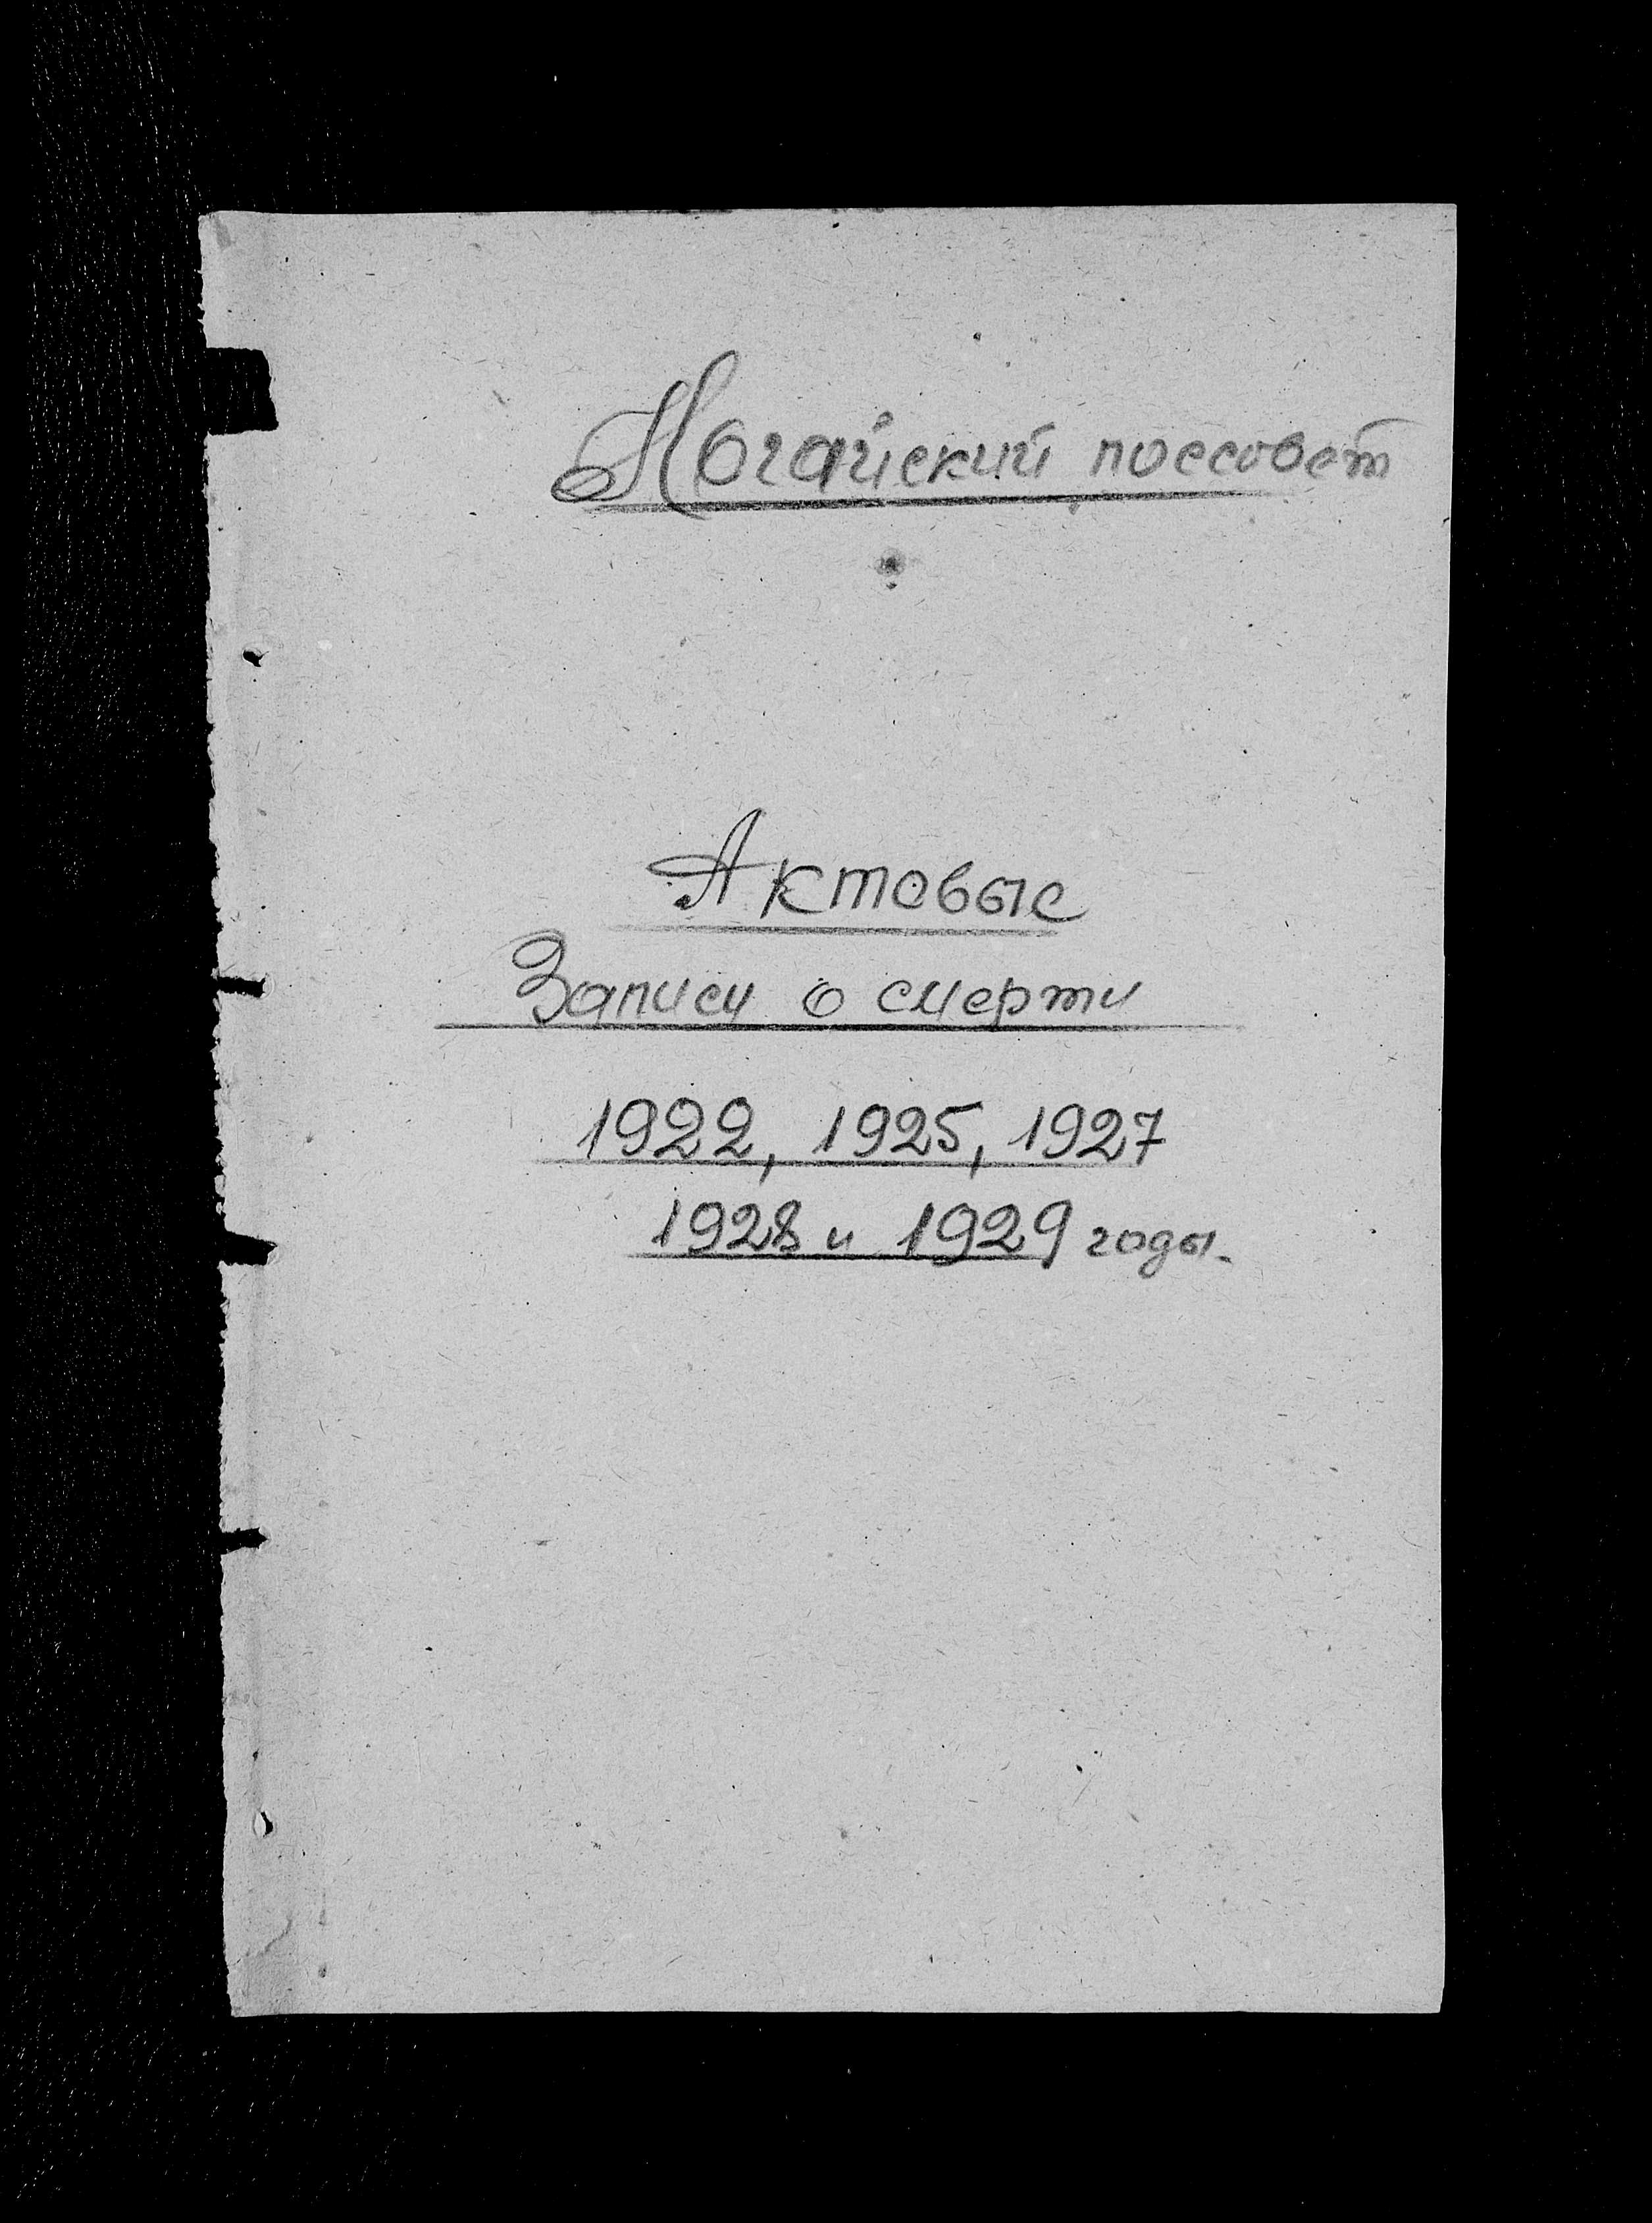 Ногайский поссовет
Актовые
Записи о смерти
1922, 1925, 1927
1928 и 1929 годы.